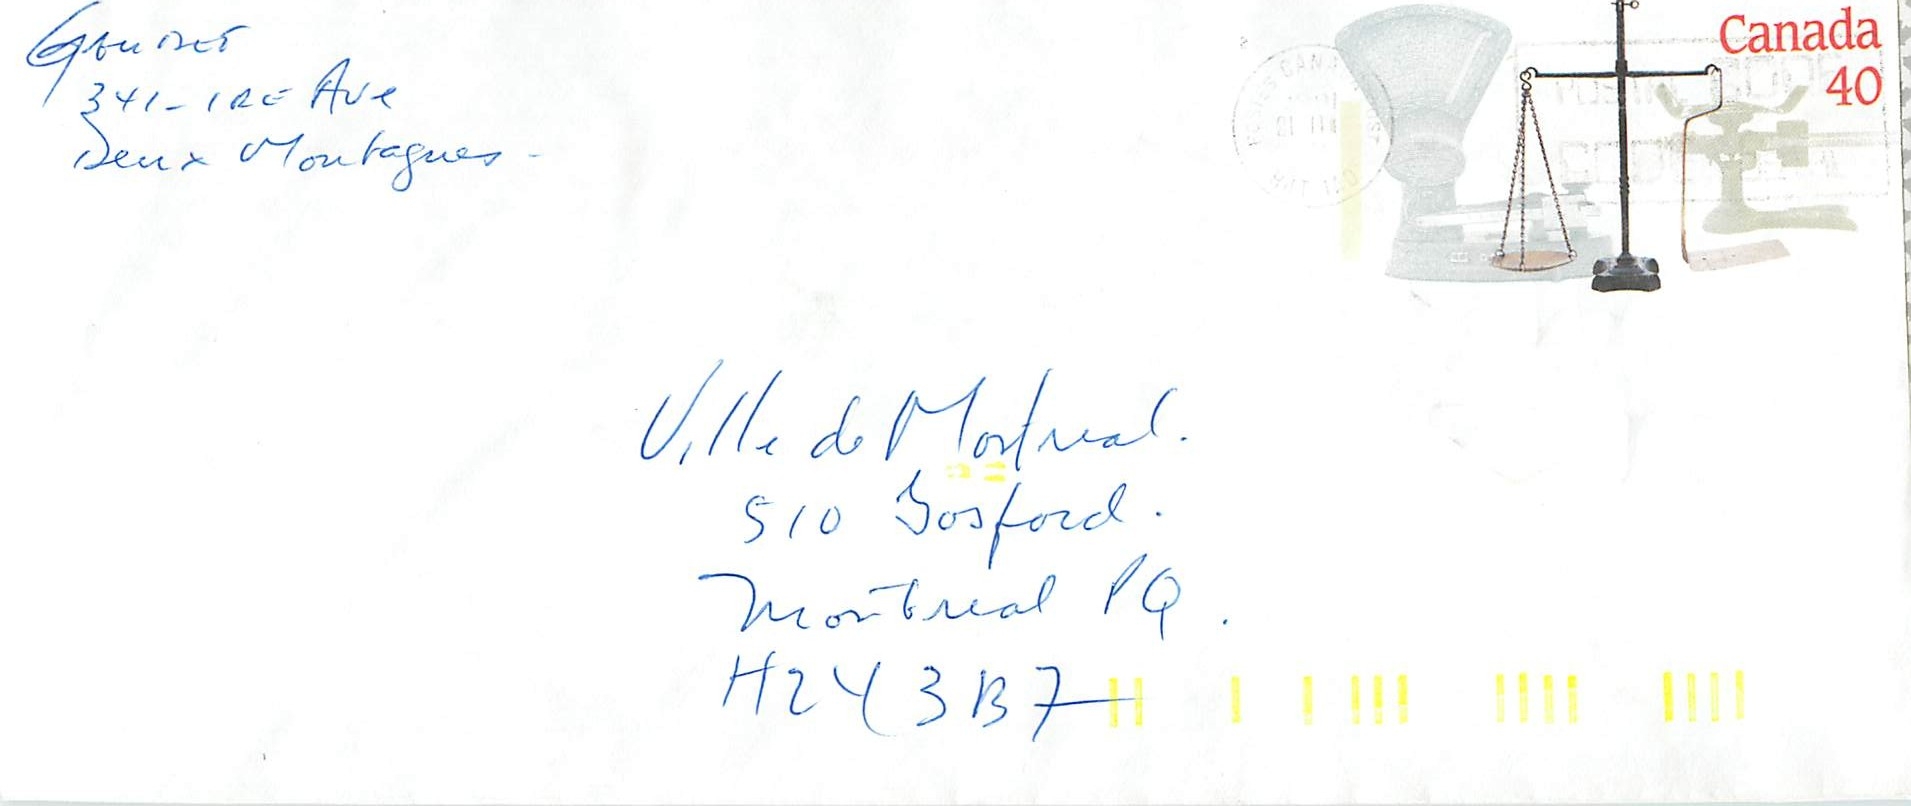 Gaudet
341-1RE Ave
Deux Montagnes -
Canada
40
Ville de Montreal.
510 Gosford.
Montreal PQ.
H2Y 3B7